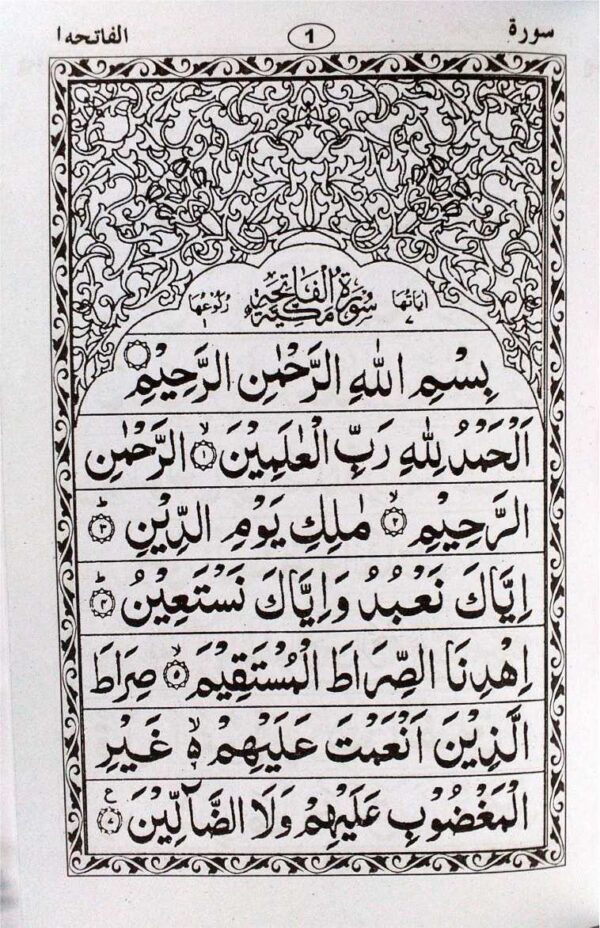 سورة 1 الفاتحه ا
اٰیَاتُهَا ٧ سُوْرَةُ الْفَاتِحَةِ مَكِّيَّةٌ رُكُوْعُهَا ١
بِسْمِ اللهِ الرَّحْمٰنِ الرَّحِيْمِ ۝
اَلْحَمْدُ لِلّٰهِ رَبِّ الْعٰلَمِيْنَ ۙ‏﴿١﴾ الرَّحْمٰنِ
الرَّحِيْمِ ۙ‏﴿٢﴾ مٰلِكِ يَوْمِ الدِّيْنِ ؕ‏﴿٣﴾
اِيَّاكَ نَعْبُدُ وَاِيَّاكَ نَسْتَعِيْنُ ؕ‏﴿۴﴾
اِهْدِنَا الصِّرَاطَ الْمُسْتَقِيْمَ ۙ‏﴿۵﴾ صِرَاطَ
الَّذِيْنَ اَنْعَمْتَ عَلَيْهِمْ ۙ۬ ۵ غَيْرِ
الْمَغْضُوْبِ عَلَيْهِمْ وَلَا الضَّآلِّيْنَ ﴿٧﴾ ع